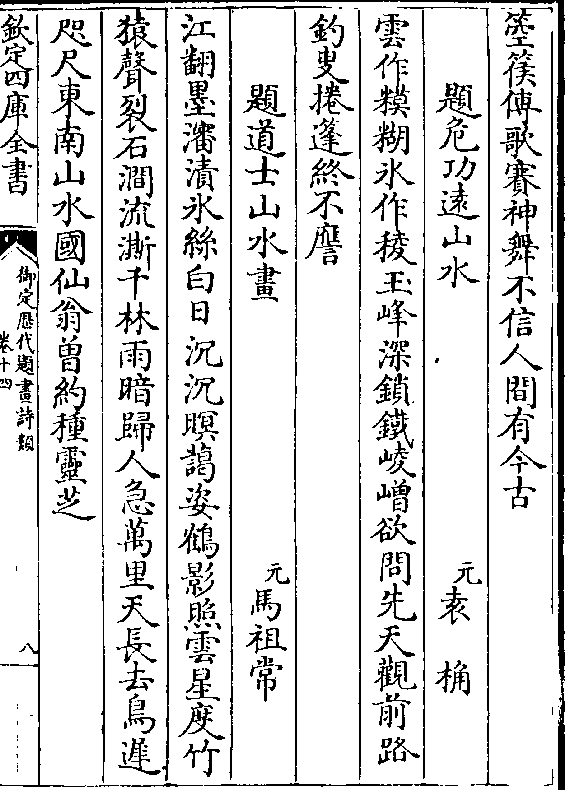 箜篌傳歌賽神舞不信人間有今古
題危功遠山水　元袁桷
雲作糢糊氷作稜玉峰深鎖鐵崚嶒欲問先天觀前路
釣叟捲篷終不譍
題道士山水畫　元馬祖常
江翻墨瀋漬氷絲白日沉沉暝藹姿鶴影照雲星度竹
猿聲裂石澗流澌千林雨暗歸人急萬里天長去鳥遲
咫尺東南山水國仙翁曽約種靈芝
欽定四庫全書
御定歴代題畫詩類
卷十四
八